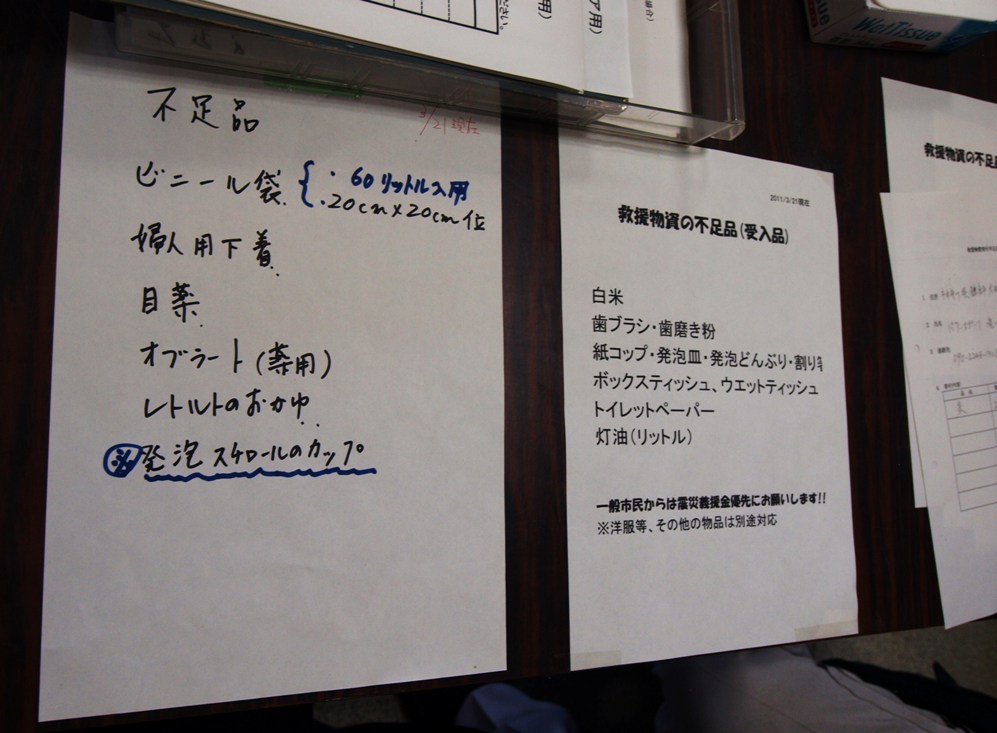 不足品
3/21現在
ビニール袋 { ・60リットル入用
・20cm×20cm位
婦人用下着
目薬
オブラート(薬用)
レトルトのおかゆ
※発泡スチロールのカップ
2011/3/21現在
救援物資の不足品(受入品)
白米
歯ブラシ・歯磨き粉
紙コップ・発泡皿・発泡どんぶり・割り箸
ボックスティッシュ、ウエットティッシュ
トイレットペーパー
灯油(リットル)
一般市民からは震災義援金優先にお願いします!!
※洋服等、その他の物品は別途対応
WetTissue
救援物資の不足品
米